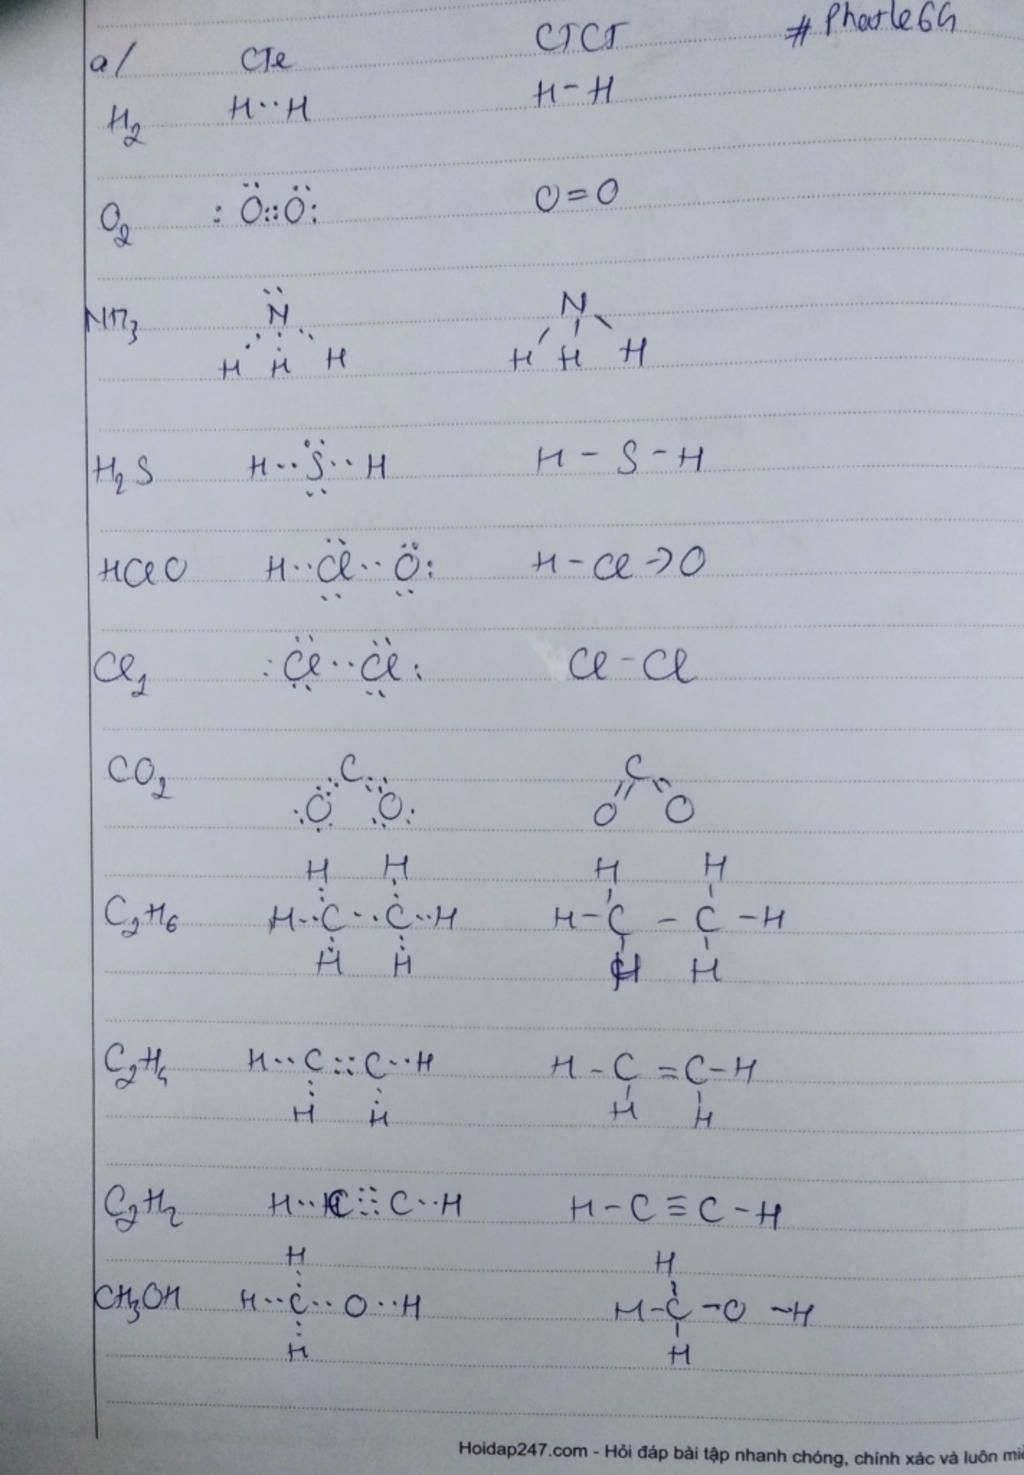 a/ CTe CTCT #Pharle64
H₂ H··H H-H
O₂ :Ö::Ö: O=O
NH₃ N̈ N
H H H H H H
H₂S H··S̤̈··H H-S-H
HClO H··C̤̈l··Ö̤: H-Cl→O
Cl₂ :C̤̈l··C̤̈l: Cl-Cl
CO₂ C C
:O O: O O
H H H H
C₂H₆ H··C··C··H H-C-C-H
H H H H
C₂H₄ H··C::C··H H-C=C-H
H H H H
C₂H₂ H··C:::C··H H-C≡C-H
H H
CH₃OH H··C··O··H H-C-O-H
H H
Hoidap247.com - Hỏi đáp bài tập nhanh chóng, chính xác và luôn miễ